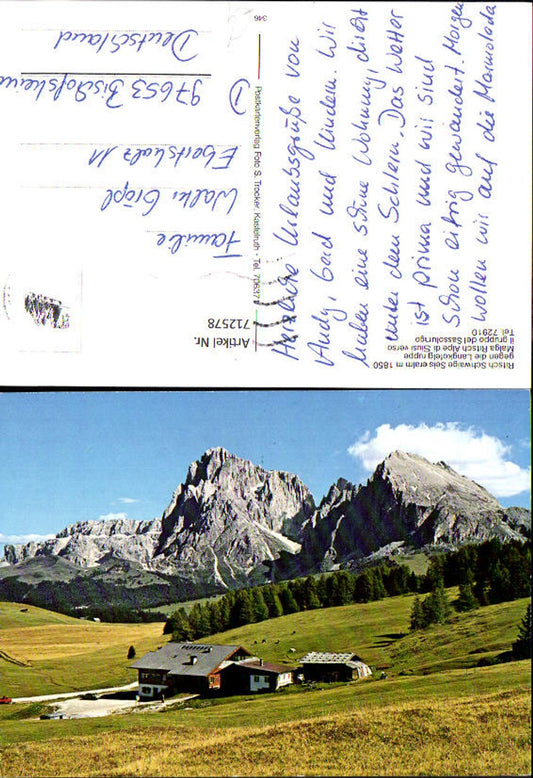 Ritsch Schwaige Seis eralm m 1850
gegen die Langkofelg ruppe
Malga Ritsch Alpe di Siusi verso
il gruppo del Sassolungo
Tel. 72910
Artikel Nr.
712578
Herzliche Urlaubsgrüße von
Andy, Gerd und Kindern. Wir
haben eine schöne Wohnung, direkt
unter dem Schlern. Das Wetter
ist prima und wir sind
schon eifrig gewandert. Morgen
wollen wir auf die Marmolada
Postkartenverlag Foto S. Trocker Kastelruth - Tel. 70637
346
Familie
Walki
Ebertsholz 11
D
97653 Bischofsheim
Deutschland